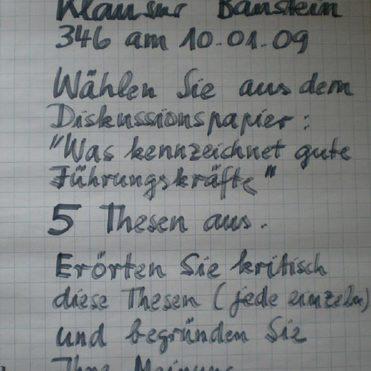 Klausur Baustein
346 am 10.01.09
Wählen Sie aus dem
Diskussionspapier:
"Was kennzeichnet gute
Führungskräfte"
5 Thesen aus.
Erörten Sie kritisch
diese Thesen (jede einzeln)
und begründen Sie
Ihre Meinung